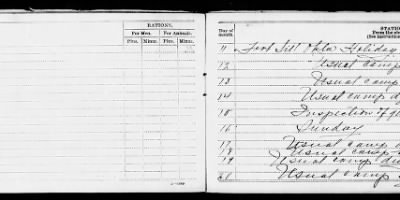 RATIONS.
For Men. For Animals.
Plus. Minus. Plus. Minus.
Day of month.
STATIO
From the
(See instructions
11 Fort Sill Okla Holiday
12 Usual camp
13 Usual camp
14 Usual camp d
15 Inspection of
16 Sunday
17 Usual camp d
18 Usual camp
19 Usual camp du
20 Usual camp